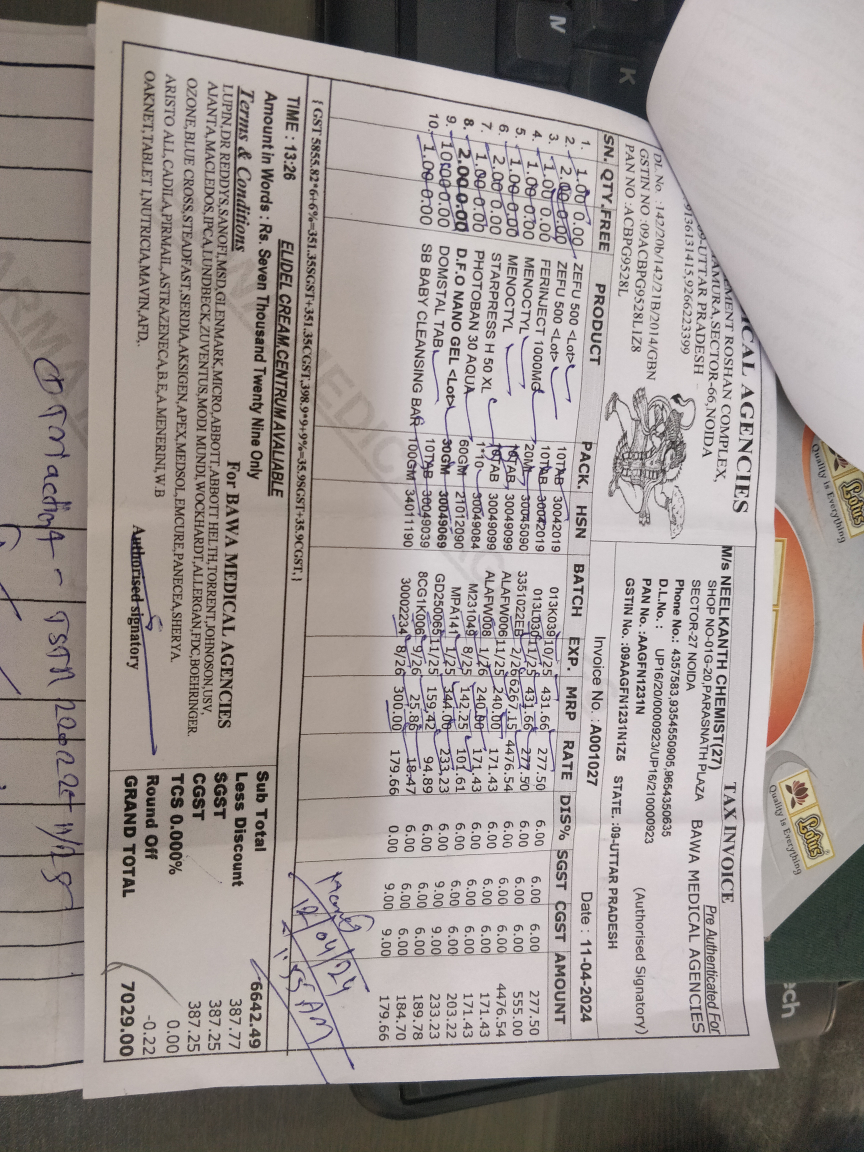 ICAL AGENCIES
MENT ROSHAN COMPLEX,
AMURA, SECTOR-66, NOIDA
09-UTTAR PRADESH
9136131415,9266223399
DL No. :142/20b/142/21B/2014/GBN
GSTIN NO :09ACBPG9528L1Z8
PAN NO :ACBPG9528L
TAX INVOICE
Pre Authenticated For
M/s NEELKANTH CHEMIST(27)
SHOP NO-01G-20,PARASNATH PLAZA BAWA MEDICAL AGENCIES
SECTOR-27 NOIDA
Phone No.: 4357583,9354550905,9654350635
D.L.No. : UP16/20/0000923/UP16/210000923
PAN No. :AAGFN1231N (Authorised Signatory)
GSTIN No. :09AAGFN1231N1Z5 STATE. :09-UTTAR PRADESH
Invoice No. : A001027 Date : 11-04-2024
SN. QTY.FREE PRODUCT PACK. HSN BATCH EXP. MRP RATE DIS% SGST CGST AMOUNT
1. 1.00 0.00 ZEFU 500 <Lot> 10TAB 30042019 013K039 10/25 431.66 277.50 6.00 6.00 6.00 277.50
2. 2.00 0.00 ZEFU 500 <Lot> 10TAB 30042019 013L030 11/25 431.66 277.50 6.00 6.00 6.00 555.00
3. 1.00 0.00 FERINJECT 1000MG 20ML 30045090 3351022EB 2/26 6267.15 4476.54 6.00 6.00 6.00 4476.54
4. 1.00 0.00 MENOCTYL 10TAB 30049099 ALAFW006 11/25 240.00 171.43 6.00 6.00 6.00 171.43
5. 1.00 0.00 MENOCTYL 10TAB 30049099 ALAFW008 1/26 240.00 171.43 6.00 6.00 6.00 171.43
6. 2.00 0.00 STARPRESS H 50 XL 1*10 30049084 M231049 8/25 142.25 101.61 6.00 6.00 6.00 203.22
7. 1.00 0.00 PHOTOBAN 30 AQUA 60GM 21012090 MPA141 1/25 344.00 233.23 6.00 9.00 9.00 233.23
8. 2.00 0.00 D.F.O NANO GEL <Lot> 30GM 30049069 GD250065 11/25 159.42 94.89 6.00 6.00 6.00 189.78
9. 10.00 0.00 DOMSTAL TAB 10TAB 30049039 8CG1K006 9/26 25.86 18.47 6.00 6.00 6.00 184.70
10. 1.00 0.00 SB BABY CLEANSING BAR 100GM 34011190 30002234 8/26 300.00 179.66 0.00 9.00 9.00 179.66
12/04/24
11:55 AM
{ GST 5855.82*6+6%=351.35SGST+351.35CGST,398.9*9+9%=35.9SGST+35.9CGST, }
ELIDEL CREAM,CENTRUM AVALIABLE
TIME : 13:26
Amount in Words : Rs. Seven Thousand Twenty Nine Only
Terms & Conditions For BAWA MEDICAL AGENCIES
LUPIN,DR REDDYS,SANOFI,MSD,GLENMARK,MICRO,ABBOTT,ABBOTT HELTH,TORRENT,JOHNOSON,USV,
AJANTA,MACLEDOS,IPCA,LUNDBECK,ZUVENTUS,MODI MUNDI,WOCKHARDT,ALLERGAN,FDC,BOEHRINGER.
OZONE,BLUE CROSS,STEADFAST,SERDIA,AKSIGEN,APEX,MEDSOL,EMCURE,PANECEA,SHERYA.
ARISTO ALL,CADILA,PIRMAIL,ASTRAZENECA,B.E,A.MENERINI,W.B
OAKNET,TABLET I,NUTRICIA,MAVIN,AFD,.
Authorised signatory
Sub Total 6642.49
Less Discount 387.77
SGST 387.25
CGST 387.25
TCS 0.000% 0.00
Round Off -0.22
GRAND TOTAL 7029.00
Lotus
Quality is Everything
Lotus
Quality is Everything
ech
N
K